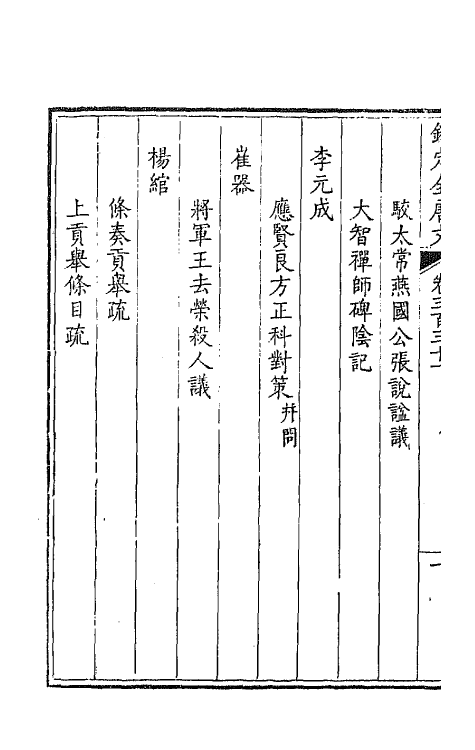 欽定全唐文 卷三百三十一 一
駮太常燕國公張說諡議
大智禪師碑陰記
李元成
應賢良方正科對策 并問
崔器
將軍王去榮殺人議
楊綰
條奏貢舉疏
上貢舉條目疏